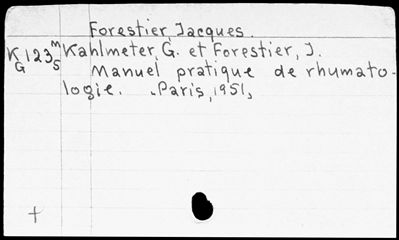 Forestier, Jacques.
K G 123 m s Kahlmeter, G. et Forestier, J.
Manuel pratique de rhumato-
logie. Paris, 1951,